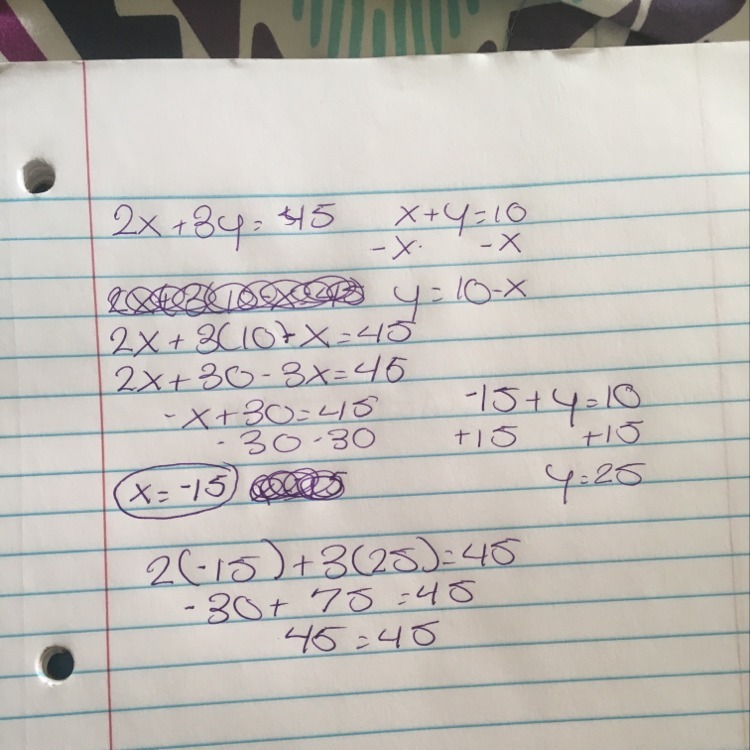 2x + 3y = 45 x + y = 10
-x -x
y = 10 - x
2x + 3(10 - x = 45
2x + 30 - 3x = 45
-x + 30 = 45 -15 + y = 10
-30 -30 +15 +15
x = -15 y = 25
2(-15) + 3(25) = 45
-30 + 75 = 45
45 = 45